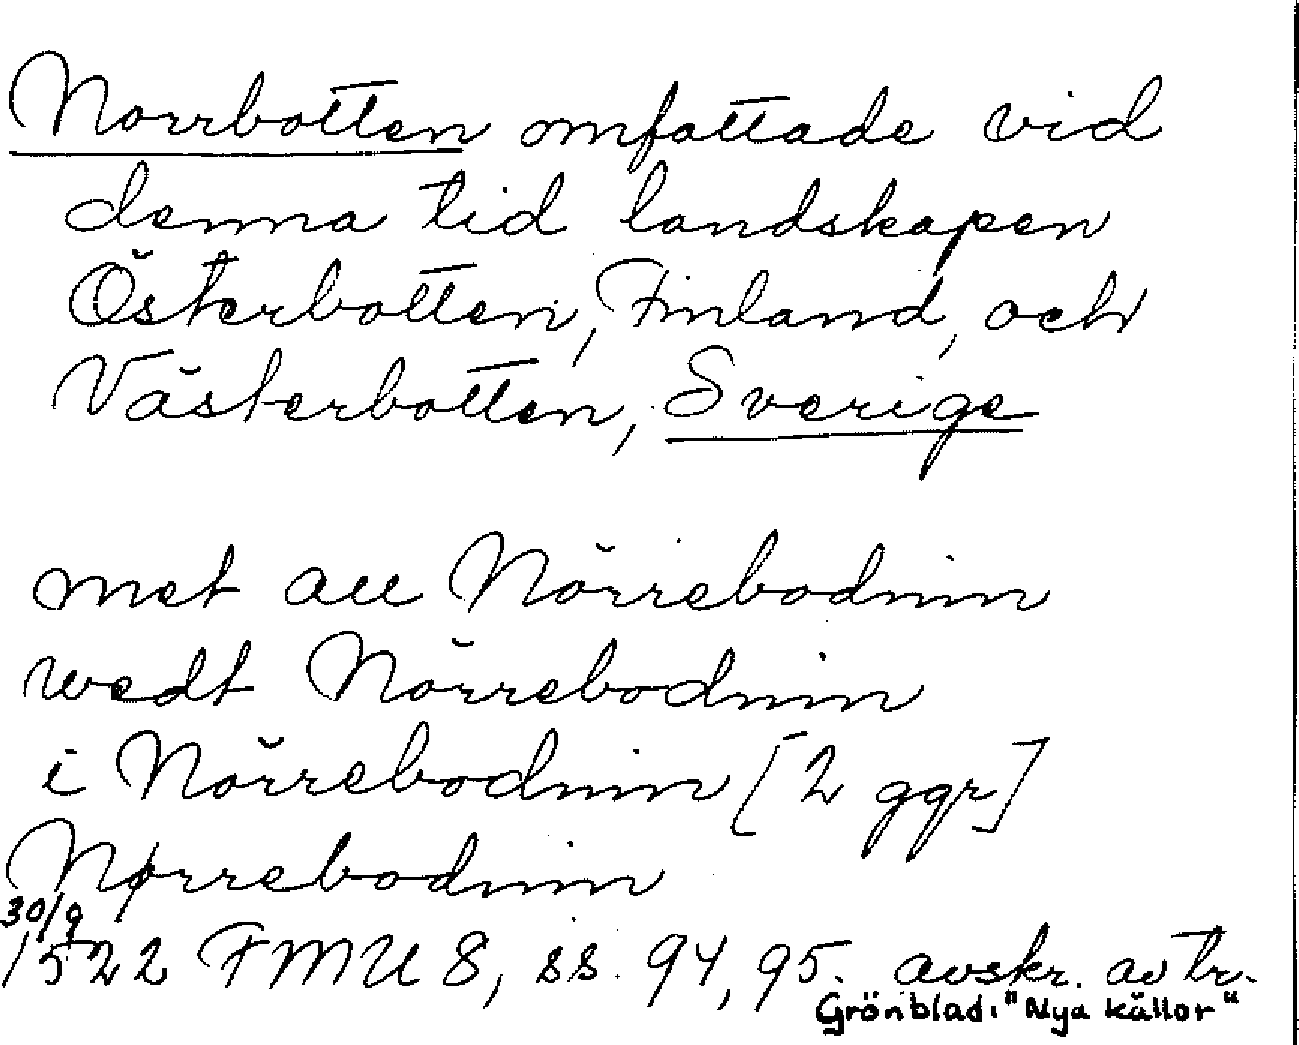 Norrbotten omfattade vid
denna tid landskapen
Österbotten, Finland, och
Västerbotten, Sverige
met all Nörrebodnin
wedt Nörrebodnin
i Nörrebodnin [2 ggr]
Nørrebodnin
30/9
1522 FMU 8, ss. 94, 95. avskr. av tr.
Grönblad: "Nya källor"